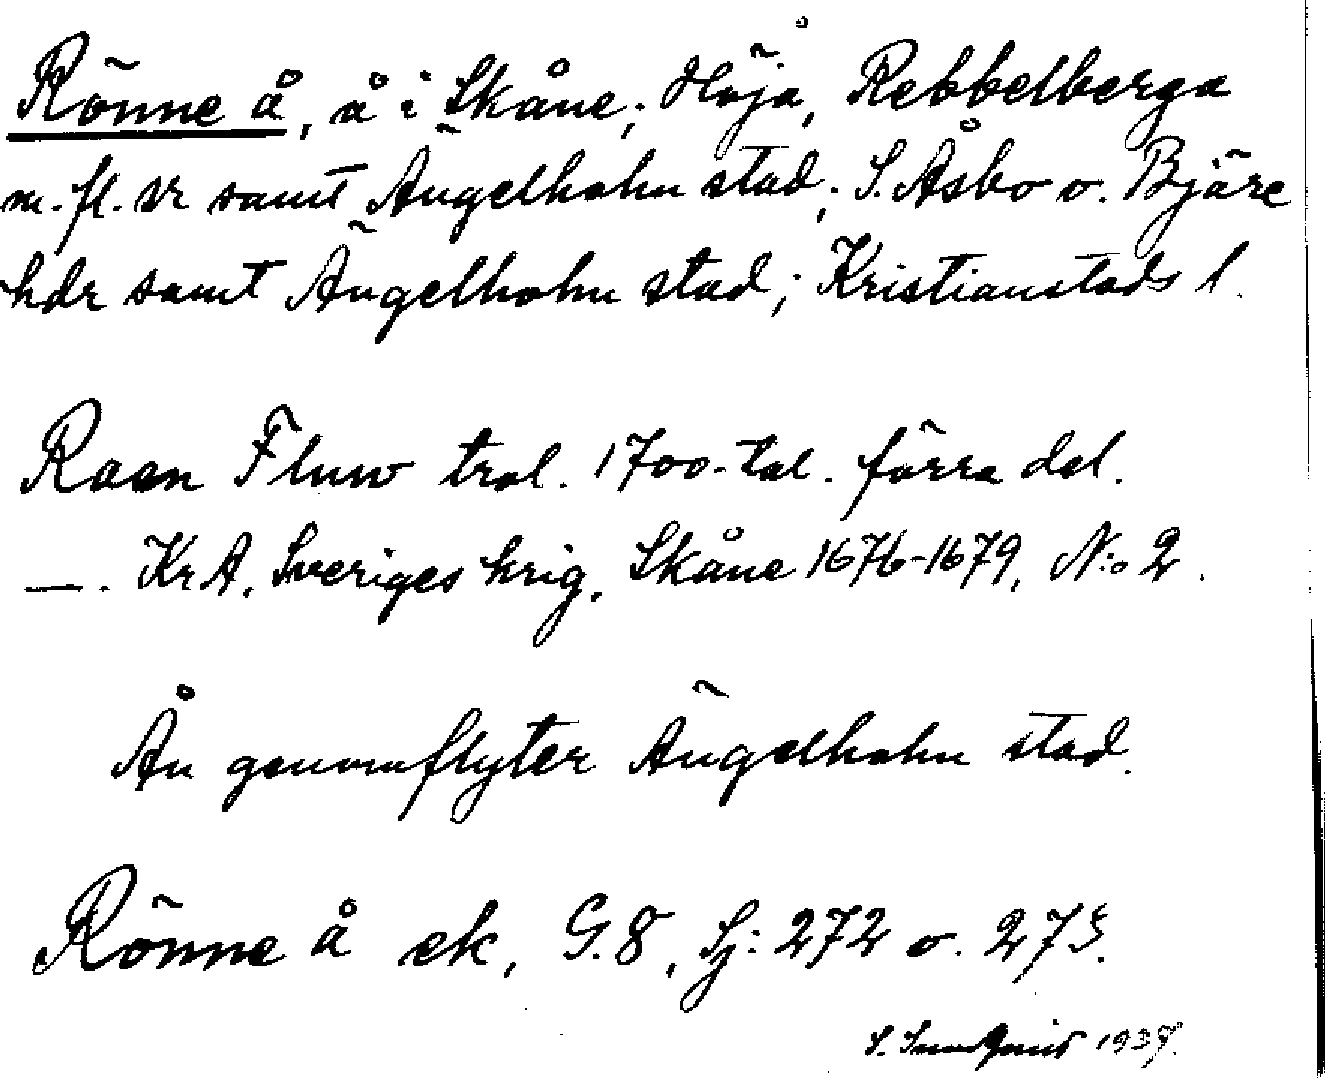 Rönne å, å i Skåne; Höja, Rebbelberga
m.fl. sr samt Ängelholm stad; S. Åsbo o. Bjäre
hdr samt Ängelholm stad; Kristianstads l.
Raan Fluw trol. 1700-tal. förra del.
—. KrA, Sveriges krig, Skåne 1676-1679, N:o 2.
Ån genomflyter Ängelholm stad.
Rönne å ek, G.8, Sj: 272 o. 273.
S. 1937.